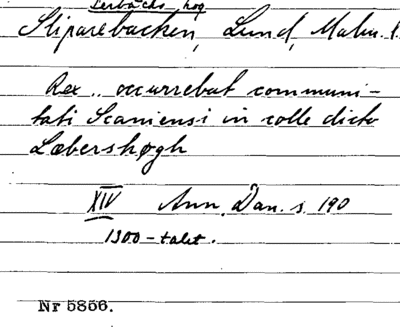 Lerbäcks hög
Sliparebacken, Lund, Malm. l.
Rex .. occurrebat communi-
tati Scaniensi in colle dicto
Læbershøgh
XIV Ann. Dan. s. 190
1300-talet.
Nr 5856.